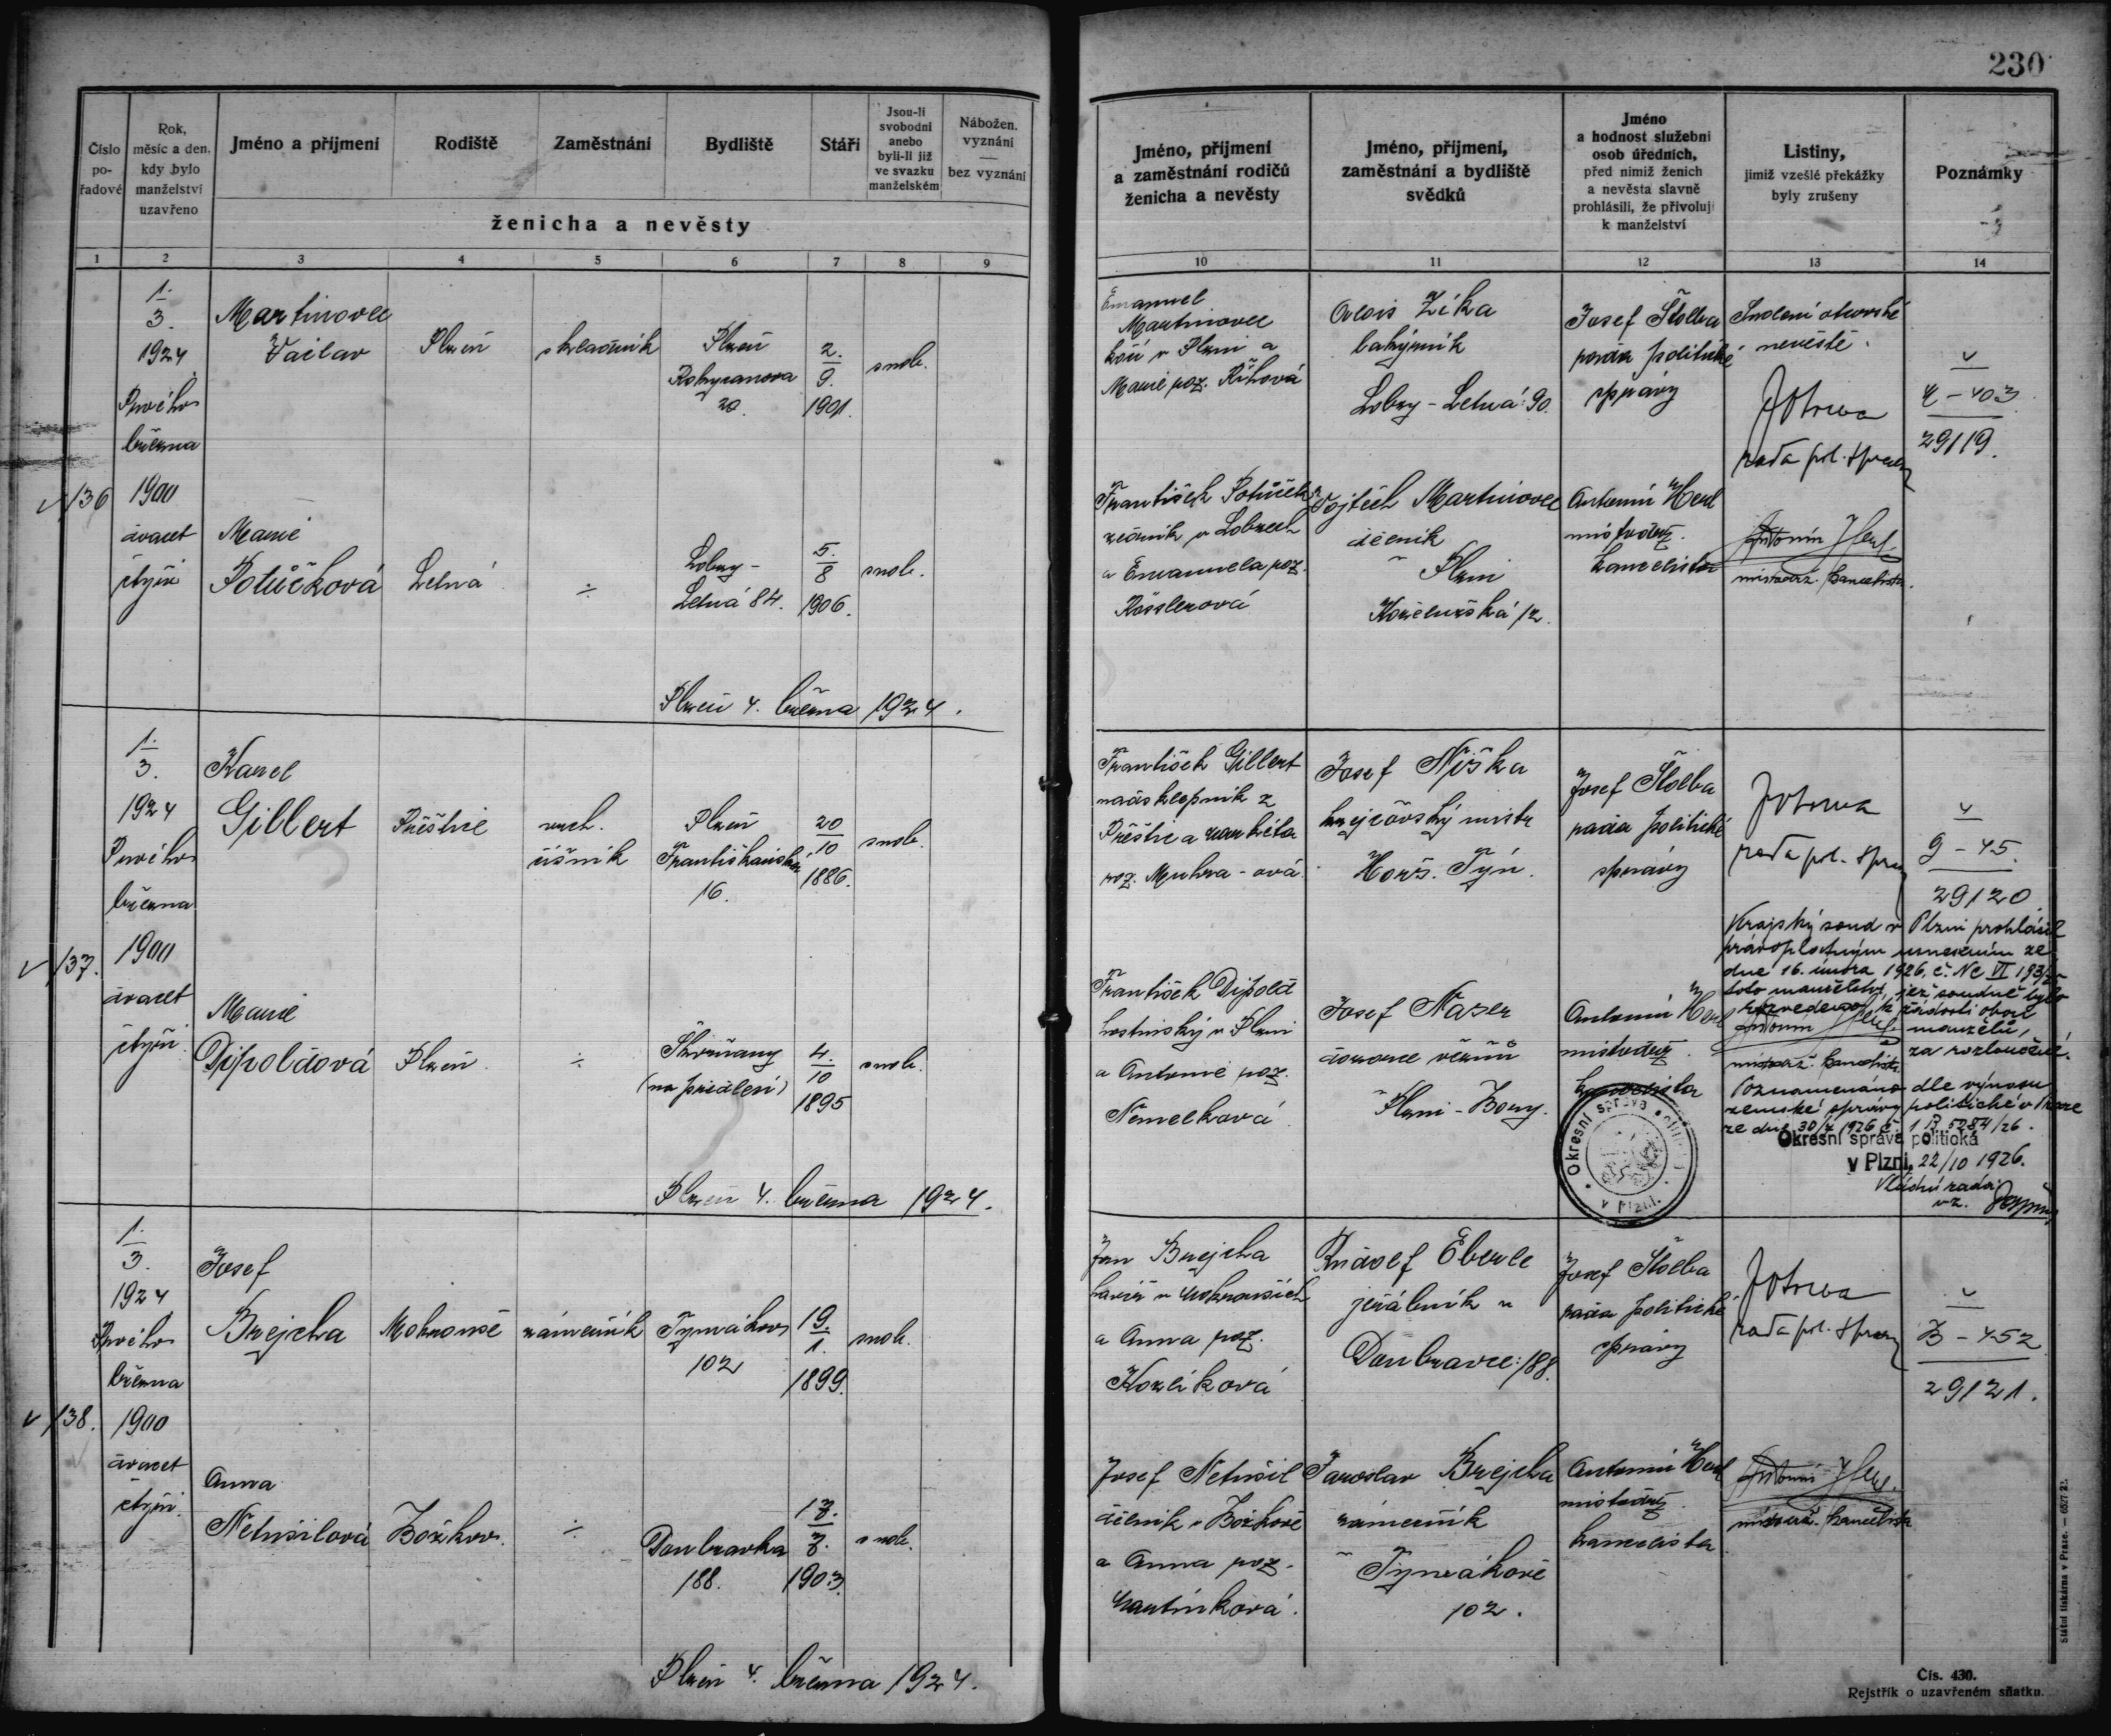 230
Číslo
po-
řadové
Rok,
měsíc a den,
kdy bylo
manželství
uzavřeno
Jméno a příjmení
Rodiště
Zaměstnání
Bydliště
Stáří
Jsou-li
svobodni
anebo
byli-li již
ve svazku
manželském
Nábožen.
vyznání
—
bez vyznání
ženicha a nevěsty
Jméno, příjmení
a zaměstnání rodičů
ženicha a nevěsty
Jméno, příjmení,
zaměstnání a bydliště
svědků
Jméno
a hodnost služební
osob úředních,
před nimiž ženich
a nevěsta slavně
prohlásili, že přivolují
k manželství
Listiny,
jimiž vzešlé překážky
byly zrušeny
Poznámky
1 2 3 4 5 6 7 8 9 10 11 12 13 14
136
1.
3.
1924
Prvého
března
1900
dvacet
čtyři
Martinovec
Václav
Plzeň
skladník
Plzeň
Rokycanova
20.
2.
9.
1901.
svob.
Emanuel
Martinovec
kočí v Plzni a
Marie roz. Říhová
Alois Zíka
Lobzy - Letná: 90.
Josef Stolba
rada politické
správy
Svolení otcovské
nevěstě.
rada pol. správy
4 - 403
29119.
Marie
Potůčková
Letná
÷
Lobzy -
Letná 84.
5.
8
1906.
svob.
František Potůček
zedník v Lobzech
a Emanuela roz.
Rösslerová
Vojtěch Martinovec
dělník
Plzni
Koželužská 12.
Antonín Herl
místodrž.
kancelista
Antonín Herl
místodrž. kancelista.
Plzeň 4. března 1924.
137.
1.
3.
1924
Prvého
března
1900
dvacet
čtyři
Karel
Gillert
Přeštice
vrch.
číšník
Plzeň
Františkánská
16.
20
10
1886.
svob.
František Gillert
z
Přeštic a Markéta
roz. Muhra-ová
Josef Niška
krejčovský mistr
Horš. Týn.
Josef Stolba
rada politické
správy
rada pol. správy
9 - 45.
29120
Krajský soud v Plzni prohlásil
právoplatným usnesením ze
dne 16. února 1926, č. Nc VI 193/25
toto manželství, jež soudně bylo
rozvedeno k žádosti obou
manželů,
za rozloučené.
Poznamenáno dle výnosu
zemské správy politické v Praze
ze dne 30/4 1926 č. 1 B 5284/26.
Okresní správa politická
v Plzni, 22/10 1926.
Vládní rada:
vz.
Marie
Dipoldová
Plzeň
÷
Skvrňany
(na přídělení)
4.
10
1895
svob.
František Dipold
hostinský v Plzni
a Antonie roz.
Němečková
Josef Naser
dozorce věznů
Plzni - Bory.
Antonín Herl
místodrž.
kancelista
Antonín Herl
místodrž. kancelista
Okresní správa politická
v Plzni.
Plzeň 4. března 1924.
138.
1.
3.
1924
Prvého
března
1900
dvacet
čtyři
Josef
Brejcha
Mokrouše
zámečník
Tymákov
102
19.
1.
1899.
svob.
Jan Brejcha
havíř v Mokrouších
a Anna roz.
Kozlíková
Rudolf Eberle
jeřábník v
Doubravce: 188.
Josef Stolba
rada politické
správy
rada pol. správy
B - 452
29121.
Anna
Netušilová
Božkov.
÷
Doubravka
188.
17.
7.
1903.
svob.
Josef Netušil
dělník v Božkově
a Anna roz.
Martínková.
Jaroslav Brejcha
zámečník
Tymákově
102.
Antonín Herl
místodrž.
kancelista
Antonín Herl.
místodrž. kancelista
Plzeň 4. března 1924.
Státní tiskárna v Praze.
Čís. 430.
Rejstřík o uzavřeném sňatku.